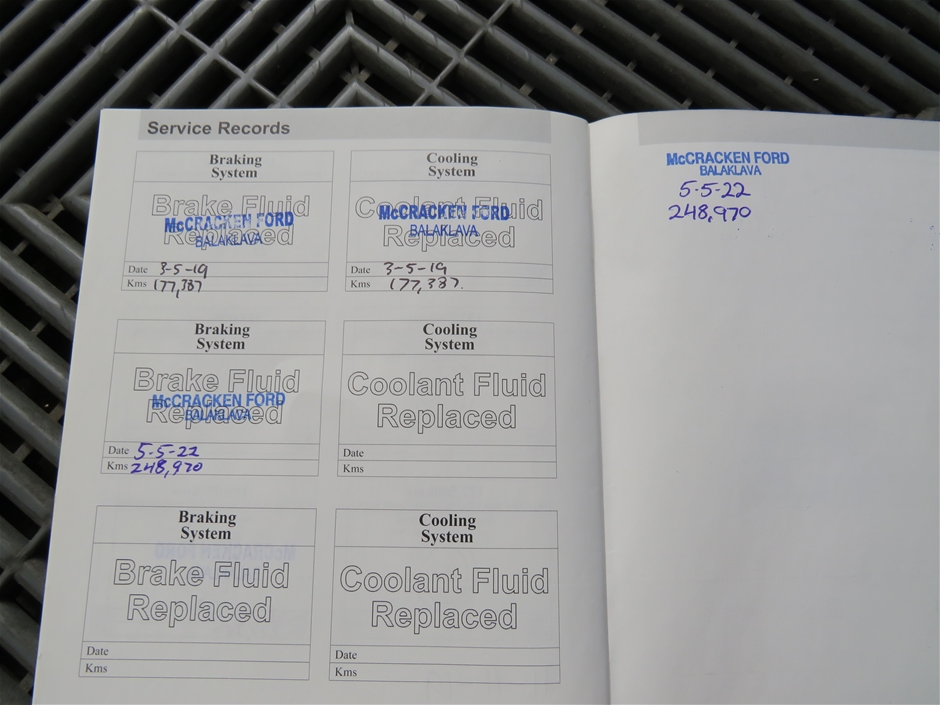 Service Records
Braking
System
Brake Fluid
Replaced
McCRACKEN FORD
BALAKLAVA
Date 3-5-19
Kms 177,387
Cooling
System
Coolant Fluid
Replaced
McCRACKEN FORD
BALAKLAVA
Date 3-5-19
Kms 177,387.
Braking
System
Brake Fluid
Replaced
McCRACKEN FORD
BALAKLAVA
Date 5-5-22
Kms 248,970
Cooling
System
Coolant Fluid
Replaced
Date
Kms
Braking
System
Brake Fluid
Replaced
Date
Kms
Cooling
System
Coolant Fluid
Replaced
Date
Kms
McCRACKEN FORD
BALAKLAVA
5-5-22
248,970